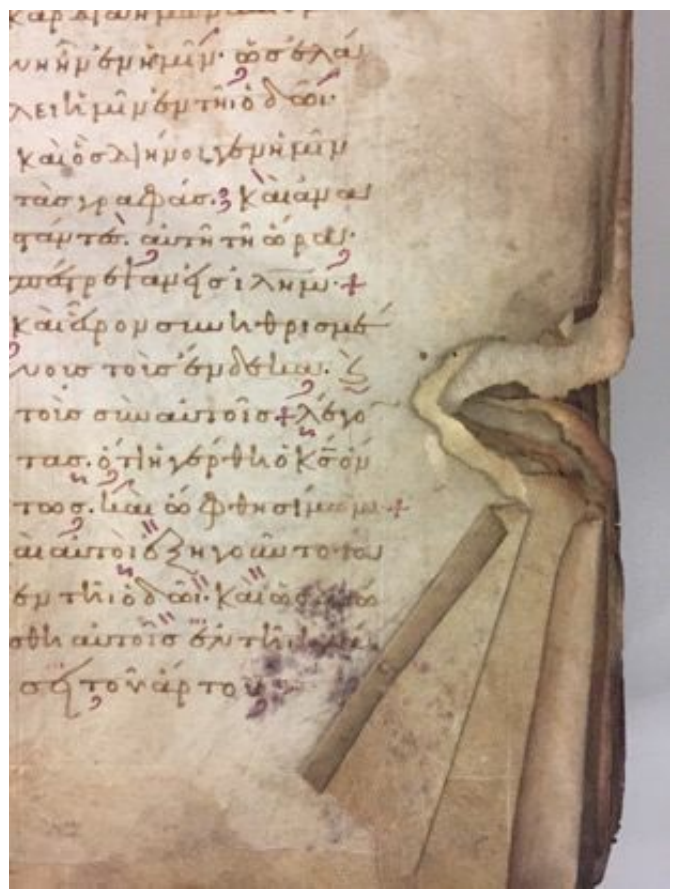 καρδία ἡμῶν
νη ἦν ἐν ἡμῖν· ὡς ἐλά
λει ἡμῖν ἐν τῆι ὁδῶι·
καὶ ὡς διήνοιγεν ἡμῖν
τὰς γραφάς. καὶ ἀνα
στάντες. αὐτῆ τῆ ὥρα·
εἰς ἰλημ +
καὶ εὗρον συνηθροισμέ
νους τοὺς ἕνδεκα. καὶ
τοὺς σὺν αὐτοῖς + λέγο
τας. ὅτι ἠγέρθη ὁ κς ὄν
τως. καὶ ὤφθη σίμωνι +
αὐτοὶ ἐξηγοῦντο τὰ
ἐν τῆι ὁδῶι· καὶ ὡς
σθη αὐτοῖς ἐν τῆι κλά
σει τοῦ ἄρτου